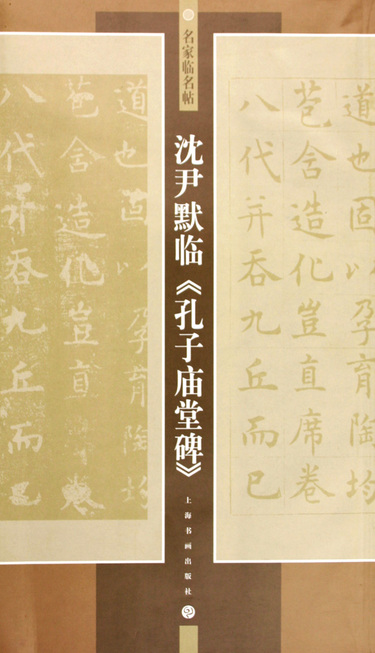 名家临名帖
沈尹默临《孔子庙堂碑》
上海书画出版社
道也固以孕育陶均
苞含造化岂直席卷
八代并吞九丘而已
道也固以孕育陶
苞含造化豈直卷
八代并吞九丘而已